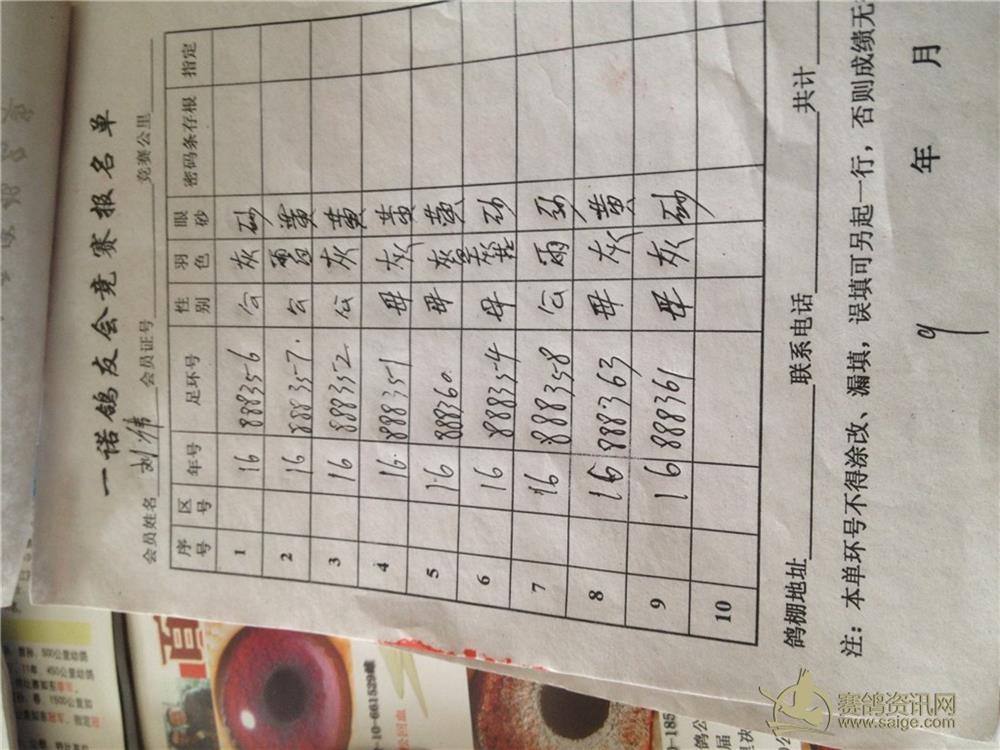 一诺鸽友会竞赛报名单
会员姓名 刘伟 会员证号 竞赛公里
序号 区号 年号 足环号 性别 羽色 眼砂 密码条存根 指定
1 16 888356 公 灰 砂
2 16 888357 公 雨 黄
3 16 888352 公 灰 黄
4 16 888351 母 灰 黄
5 16 888360 母 灰 黄
6 16 888354 母 砂
7 16 888358 公 雨 砂
8 16 888363 母 灰 黄
9 16 888361 母 灰 砂
10
鸽棚地址 联系电话 共计
注：本单环号不得涂改、漏填，误填可另起一行，否则成绩无
9 年 月
赛鸽资讯网
www.saige.com